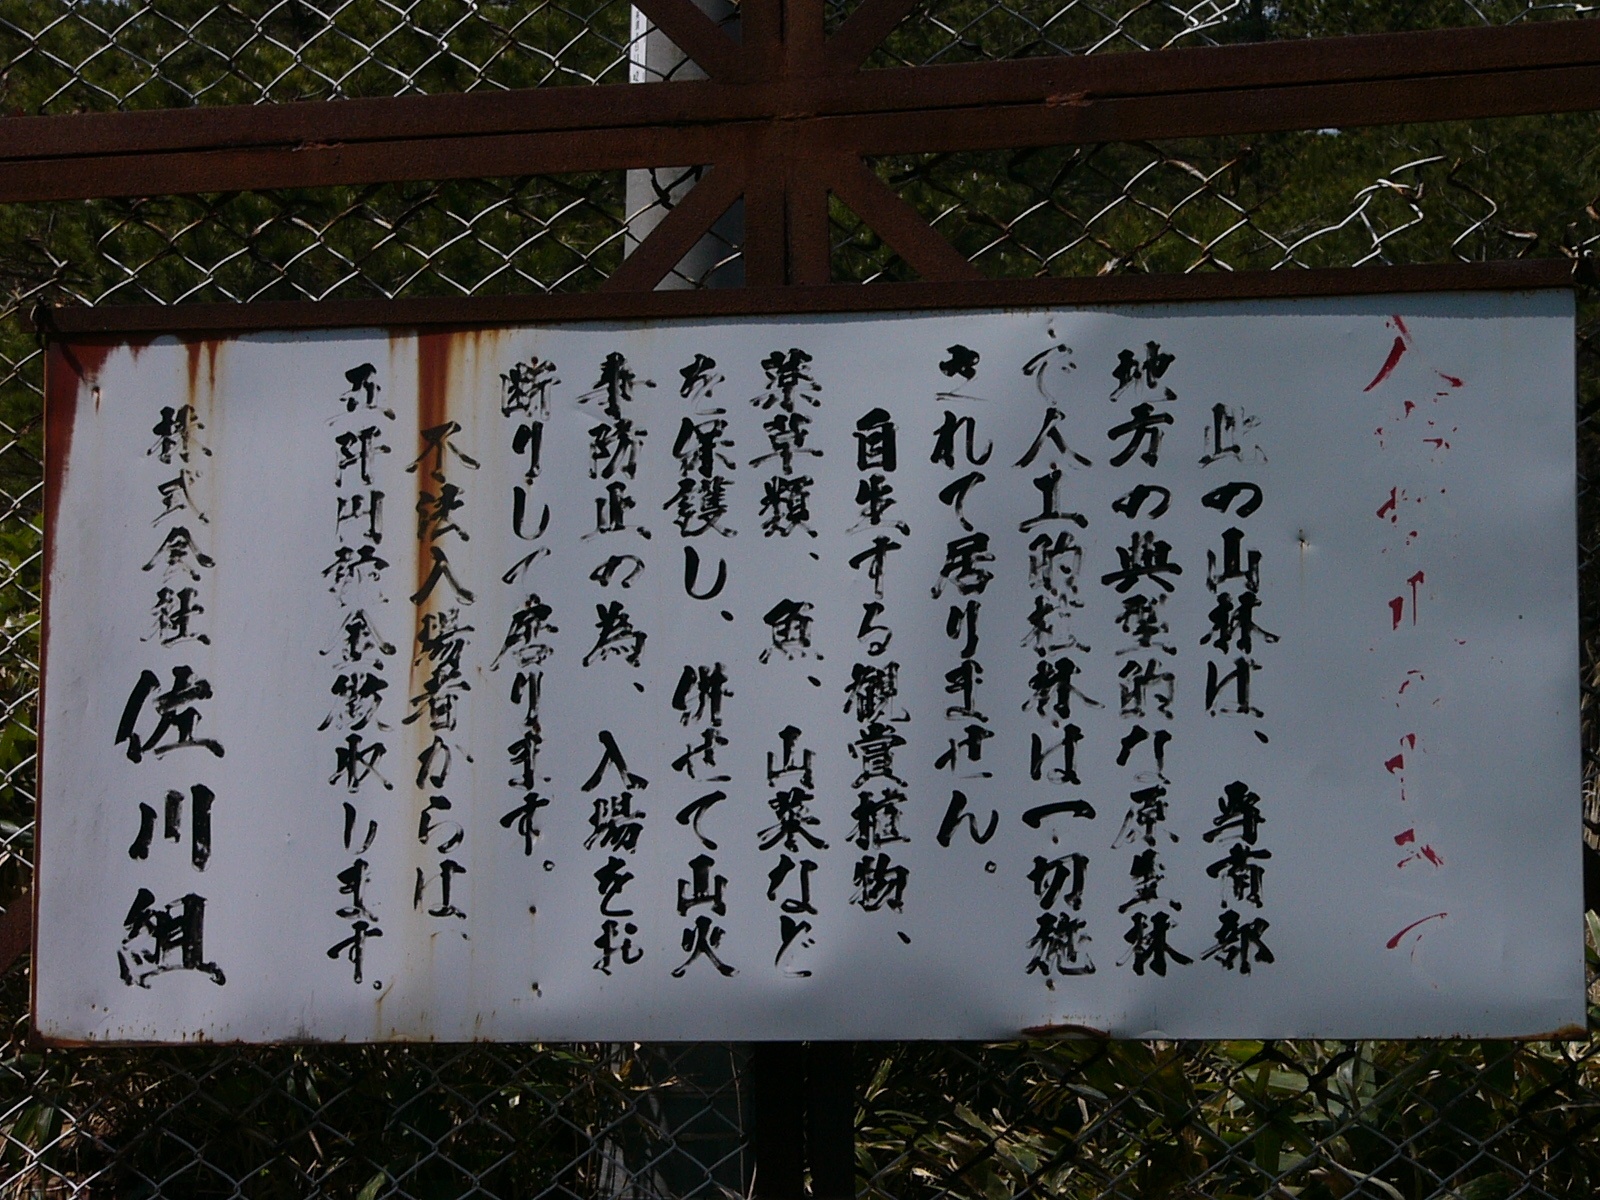 此の山林は、専有部
地方の典型的な原生林
で人工的植林は一切施
されて居りません。
自生する観賞植物、
薬草類、魚、山菜など
を保護し、併せて山火
事防止の為、入場をお
断りして居ります。
不法入場者からは、
金徴収します。
株式会社佐川組